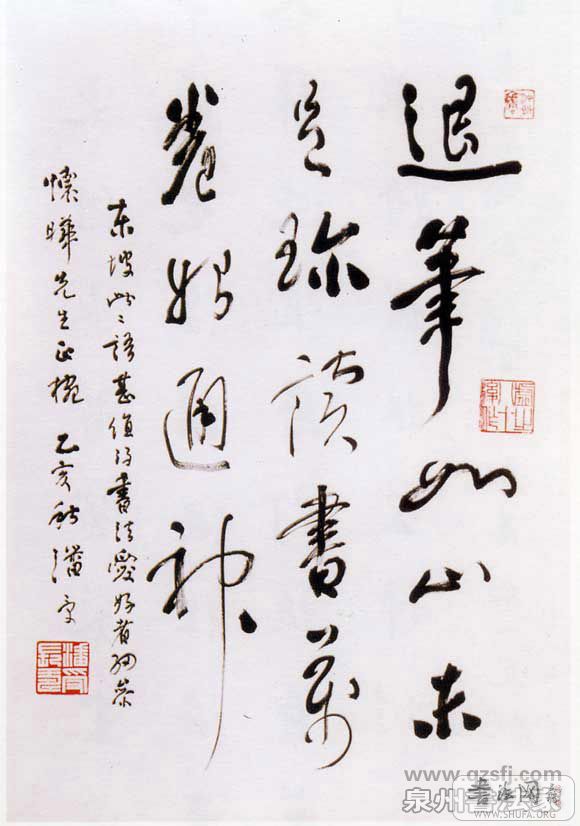 退筆如山未
足珍讀書萬
卷始通神
東坡此二語甚值得書法愛好者細參
懷曄先生正 乙亥秋潘受
www.qzsfj.com
泉州书法家
書法网
WWW.SHUFA.ORG